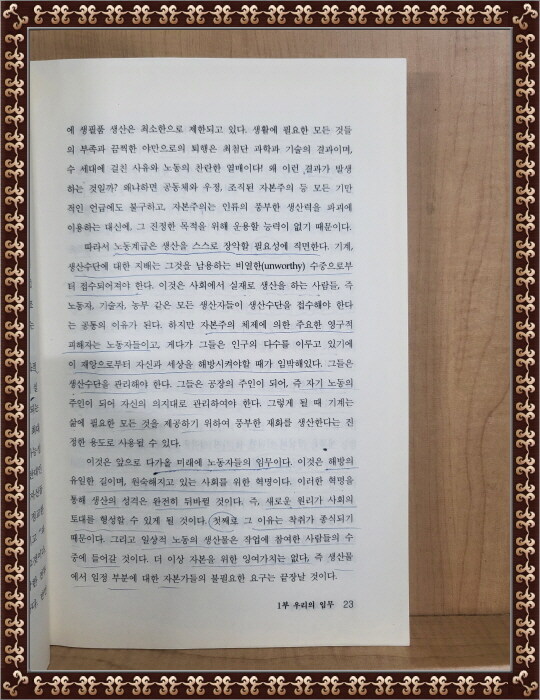 에 생필품 생산은 최소한으로 제한되고 있다. 생활에 필요한 모든 것들
의 부족과 끔찍한 야만으로의 퇴행은 최첨단 과학과 기술의 결과이며,
수 세대에 걸친 사유와 노동의 찬란한 열매이다! 왜 이런 결과가 발생
하는 것일까? 왜냐하면 공동체와 우정, 조직된 자본주의 등 모든 기만
적인 언급에도 불구하고, 자본주의는 인류의 풍부한 생산력을 파괴에
이용하는 대신에, 그 진정한 목적을 위해 운용할 능력이 없기 때문이다.
따라서 노동계급은 생산을 스스로 장악할 필요성에 직면한다. 기계,
생산수단에 대한 지배는 그것을 남용하는 비열한(unworthy) 수중으로부
터 접수되어져야 한다. 이것은 사회에서 실제로 생산을 하는 사람들, 즉
노동자, 기술자, 농부 같은 모든 생산자들이 생산수단을 접수해야 한다
는 공통의 이유가 된다. 하지만 자본주의 체제에 의한 주요한 영구적
피해자는 노동자들이고, 게다가 그들은 인구의 다수를 이루고 있기에
이 재앙으로부터 자신과 세상을 해방시켜야할 때가 임박해있다. 그들은
생산수단을 관리해야 한다. 그들은 공장의 주인이 되어, 즉 자기 노동의
주인이 되어 자신의 의지대로 관리하여야 한다. 그렇게 될 때 기계는
삶에 필요한 모든 것을 제공하기 위하여 풍부한 재화를 생산한다는 진
정한 용도로 사용될 수 있다.
이것은 앞으로 다가올 미래에 노동자들의 임무이다. 이것은 해방의
유일한 길이며, 원숙해지고 있는 사회를 위한 혁명이다. 이러한 혁명을
통해 생산의 성격은 완전히 뒤바뀔 것이다. 즉, 새로운 원리가 사회의
토대를 형성할 수 있게 될 것이다. 첫째로 그 이유는 착취가 종식되기
때문이다. 그리고 일상적 노동의 생산물은 작업에 참여한 사람들의 수
중에 들어갈 것이다. 더 이상 자본을 위한 잉여가치는 없다, 즉 생산물
에서 일정 부분에 대한 자본가들의 불필요한 요구는 끝장날 것이다.
1부 우리의 임무 23